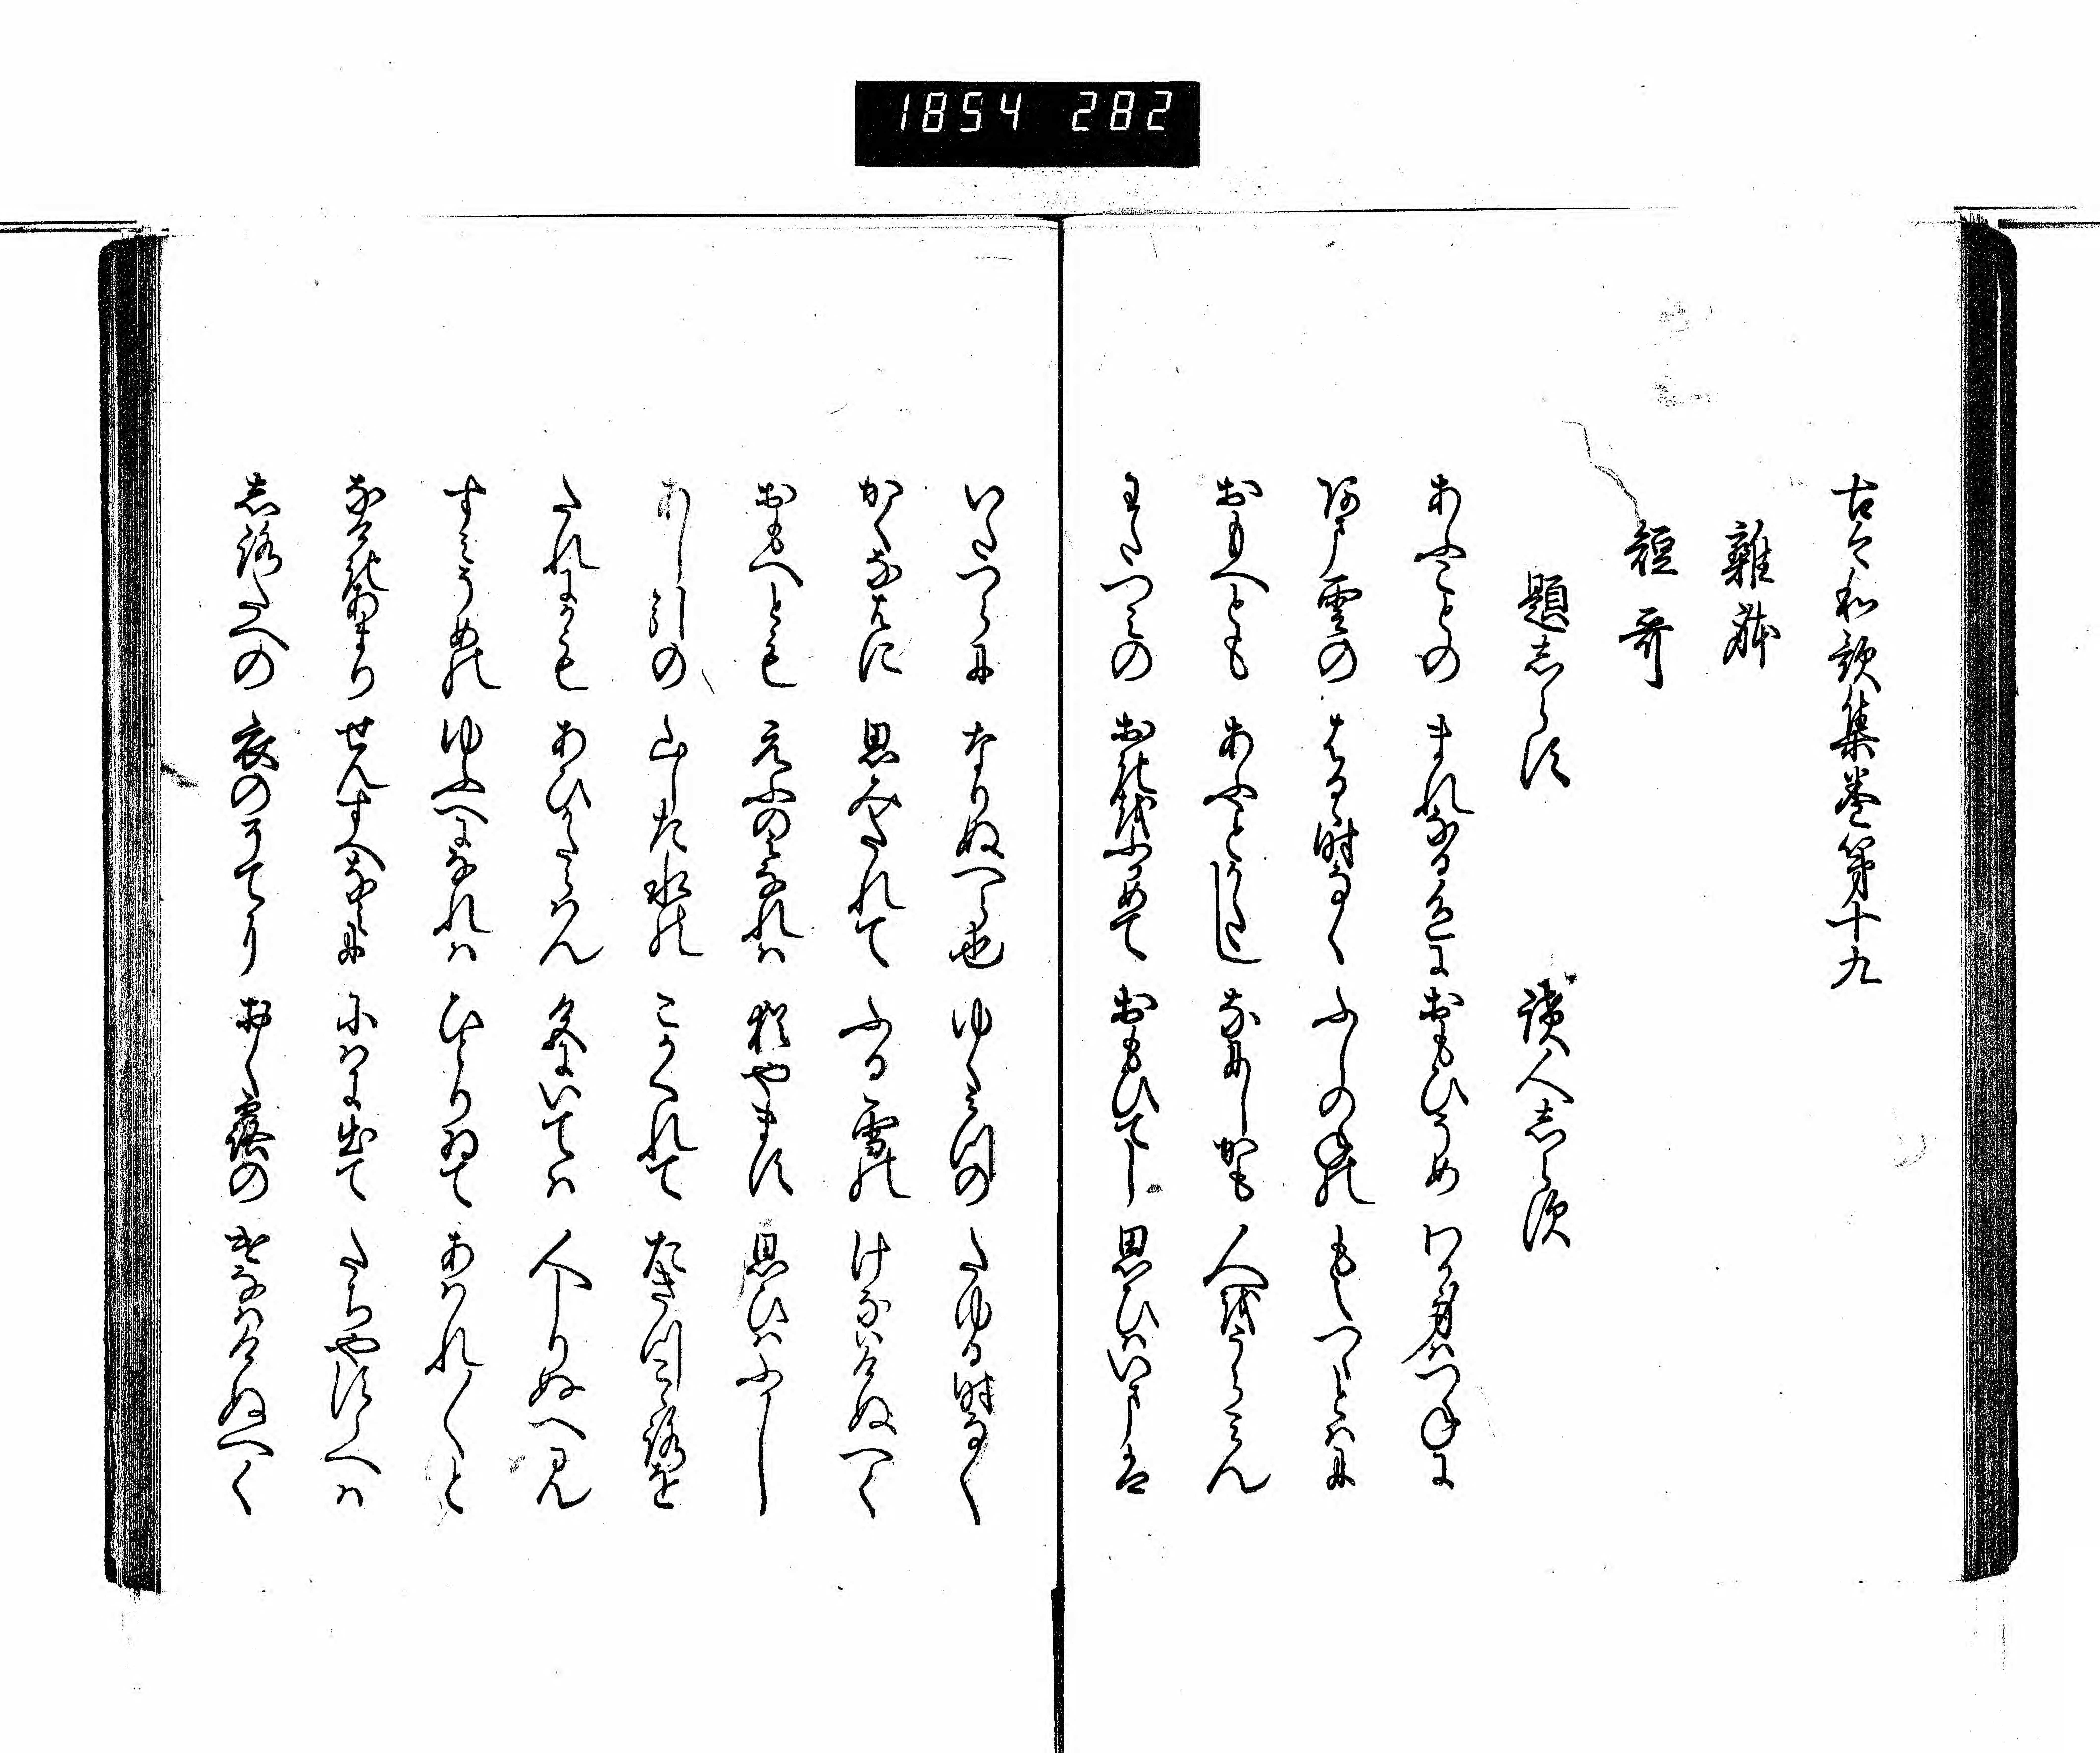 1854 282
古今和歌集巻第十九
雑躰
短哥
題しらす 読人しらす
あふことの まれなる色に おもひそめ わか身はつねに
あま雲の はるゝ時なく ふしのねの もえつゝとはに
おもへとも あふことかたし なにしかも 人をうらみん
わたつみの おきをふかめて おもひてし 思ひはいまは
いたつらに なりぬへら也 ゆく水の たゆる時なく
かくなはに 思みたれて ふる雪の けなはけぬへく
おもへとも えふの身なれは 猶やます 思ひはふかし
あし引の 山した水の こかくれて たきつ心を
たれにかも あひかたらはん 色にいては 人しりぬへみ
すみそめの ゆふへになれは ひとりゐて あはれ〳〵と
なけきあまり せんすへなみに にはに出て たちやすらへは
しろたへの 衣のそてに おく露の けなはけぬへく